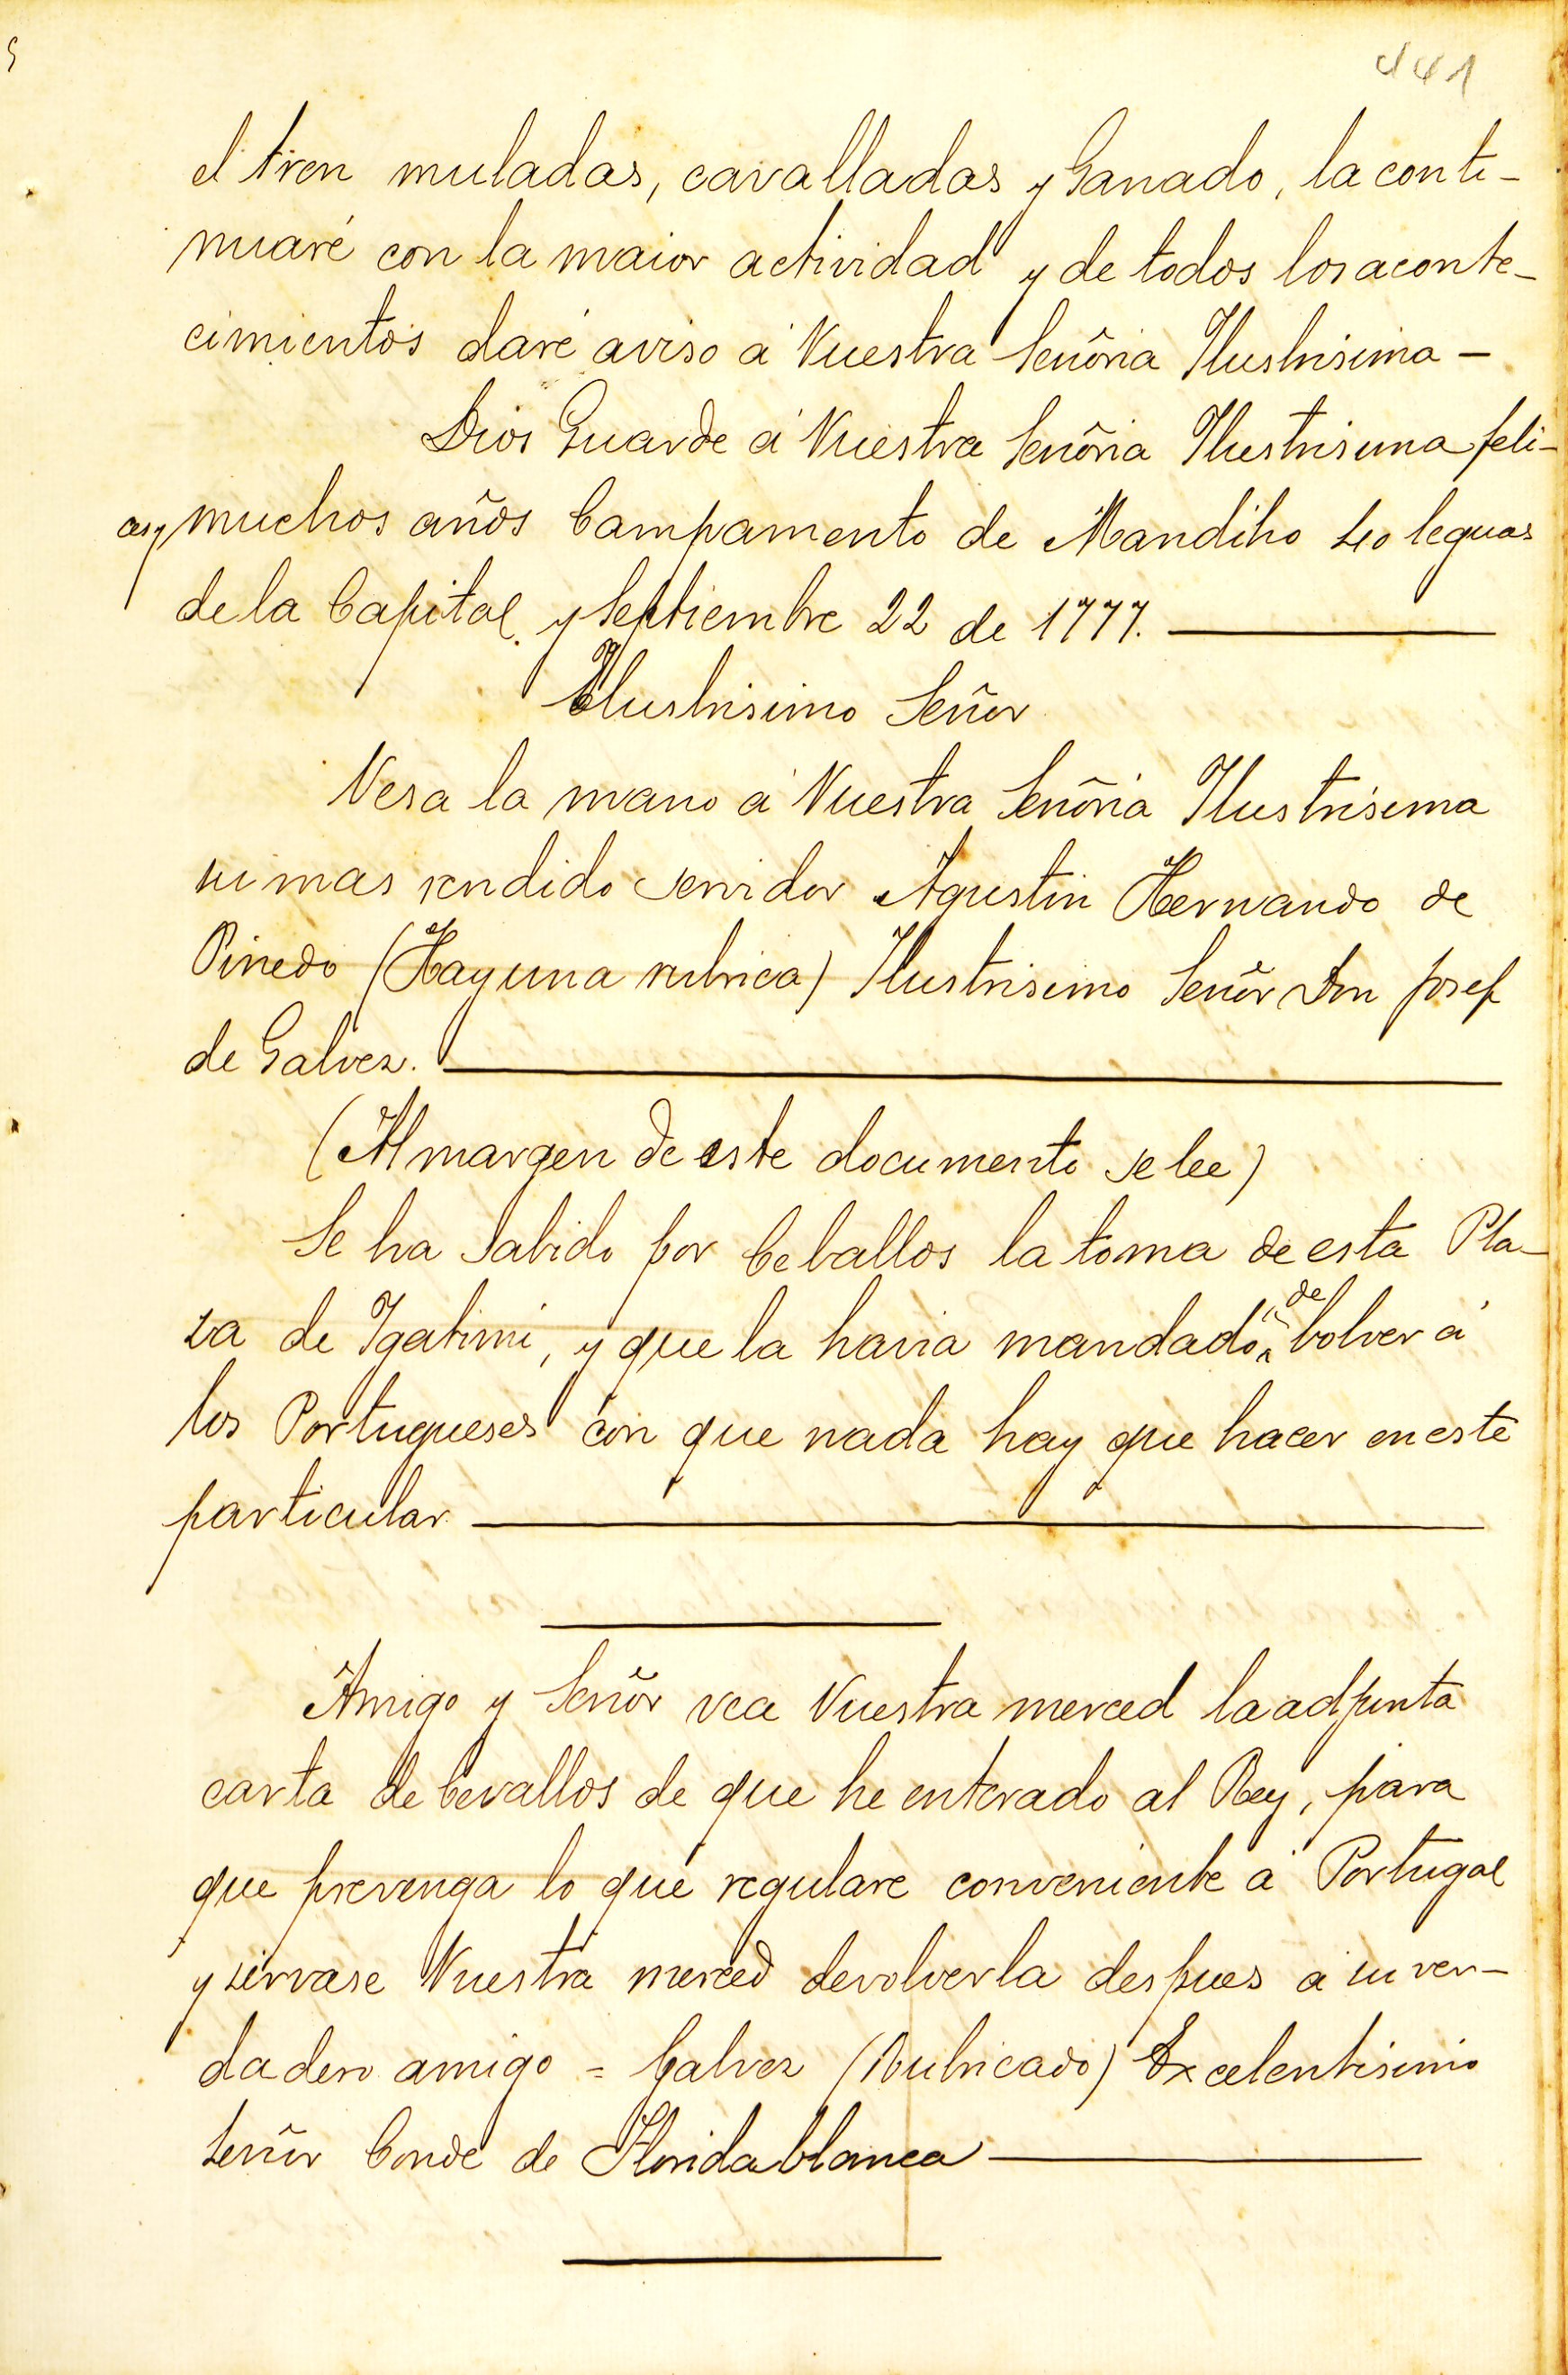 441
el tren muladas, cavalladas y Ganado, la conti-
nuaré con la maior actividad y de todos los aconte-
cimientos daré aviso á Vuestra Señoria Ilustrisima -
Dios Guarde á Vuestra Señoria Ilustrisima feli-
ces y muchos años Campamento de Mandiho 40 leguas
de la Capital y Septiembre 22 de 1777.
Ilustrisimo Señor
Vesa la mano á Vuestra Señoria Ilustrisima
su mas rendido servidor Agustin Hernando de
Pinedo (Hay una rubrica) Ilustrisimo Señor Don Josef
de Galvez.
(Al margen de este documento se lee)
Se ha Sabido por Ceballos la toma de esta Pla-
za de Igatimi, y que la havia mandado de bolver á
los Portugueses con que nada hay que hacer en este
particular
Amigo y Señor vea Vuestra merced la adjunta
carta de Cevallos de que he enterado al Rey, para
que prevenga lo que regulare conveniente á Portugal
y sirvase Vuestra merced devolverla despues á su ver-
dadero amigo = Galvez (Rubricado) Excelentisimo
Señor Conde de Floridablanca